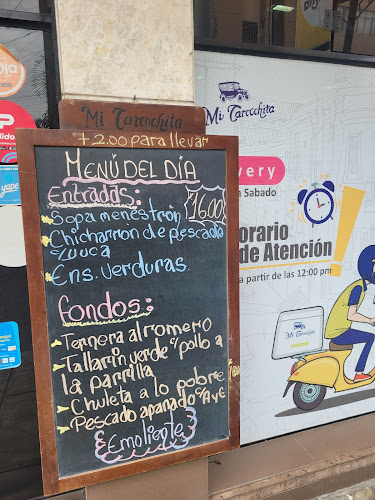 Mi Carcochita
+ 2.00 para llevar
MENÚ DEL DÍA
Entradas:
16.00
Sopa menestrón
Chicharron de pescado
c/yuca
Ens. verduras.
fondos:
Ternera al romero
Tallarin verde c/pollo a
la parrilla
Chuleta a lo pobre
Pescado apanado
Emoliente
Mi Carcochita
very
n Sabado
orario
de Atención
a partir de las 12:00 pm
Mi Carcochita
yape